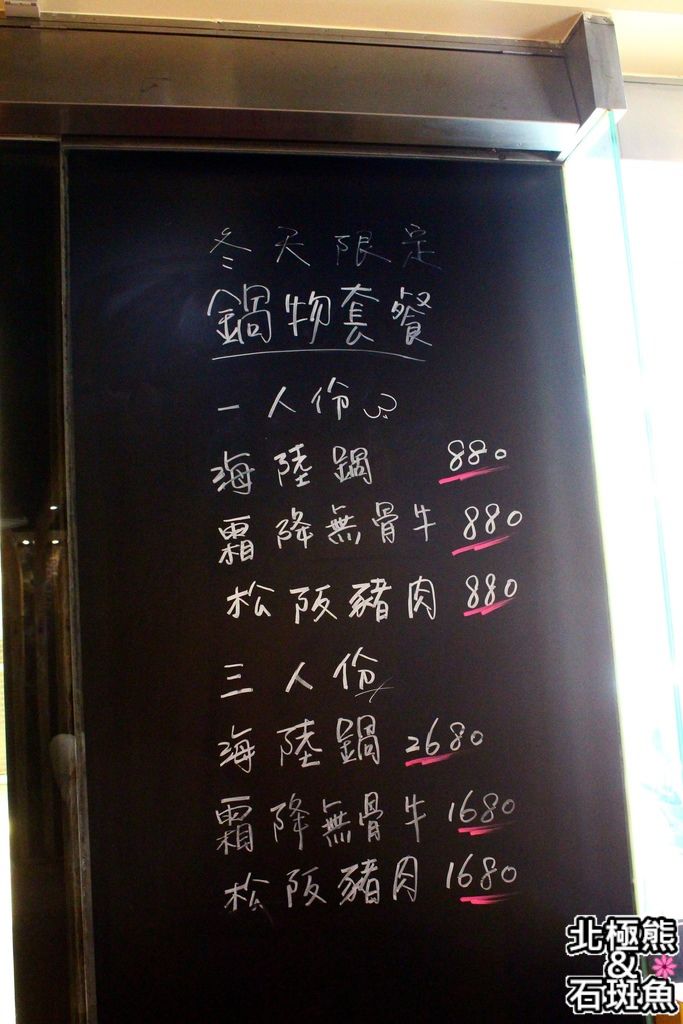 冬天限定
鍋物套餐
一人份
海陸鍋 880
霜降無骨牛 880
松阪豬肉 880
三人份
海陸鍋 2680
霜降無骨牛 1680
松阪豬肉 1680
北極熊
&
石斑魚